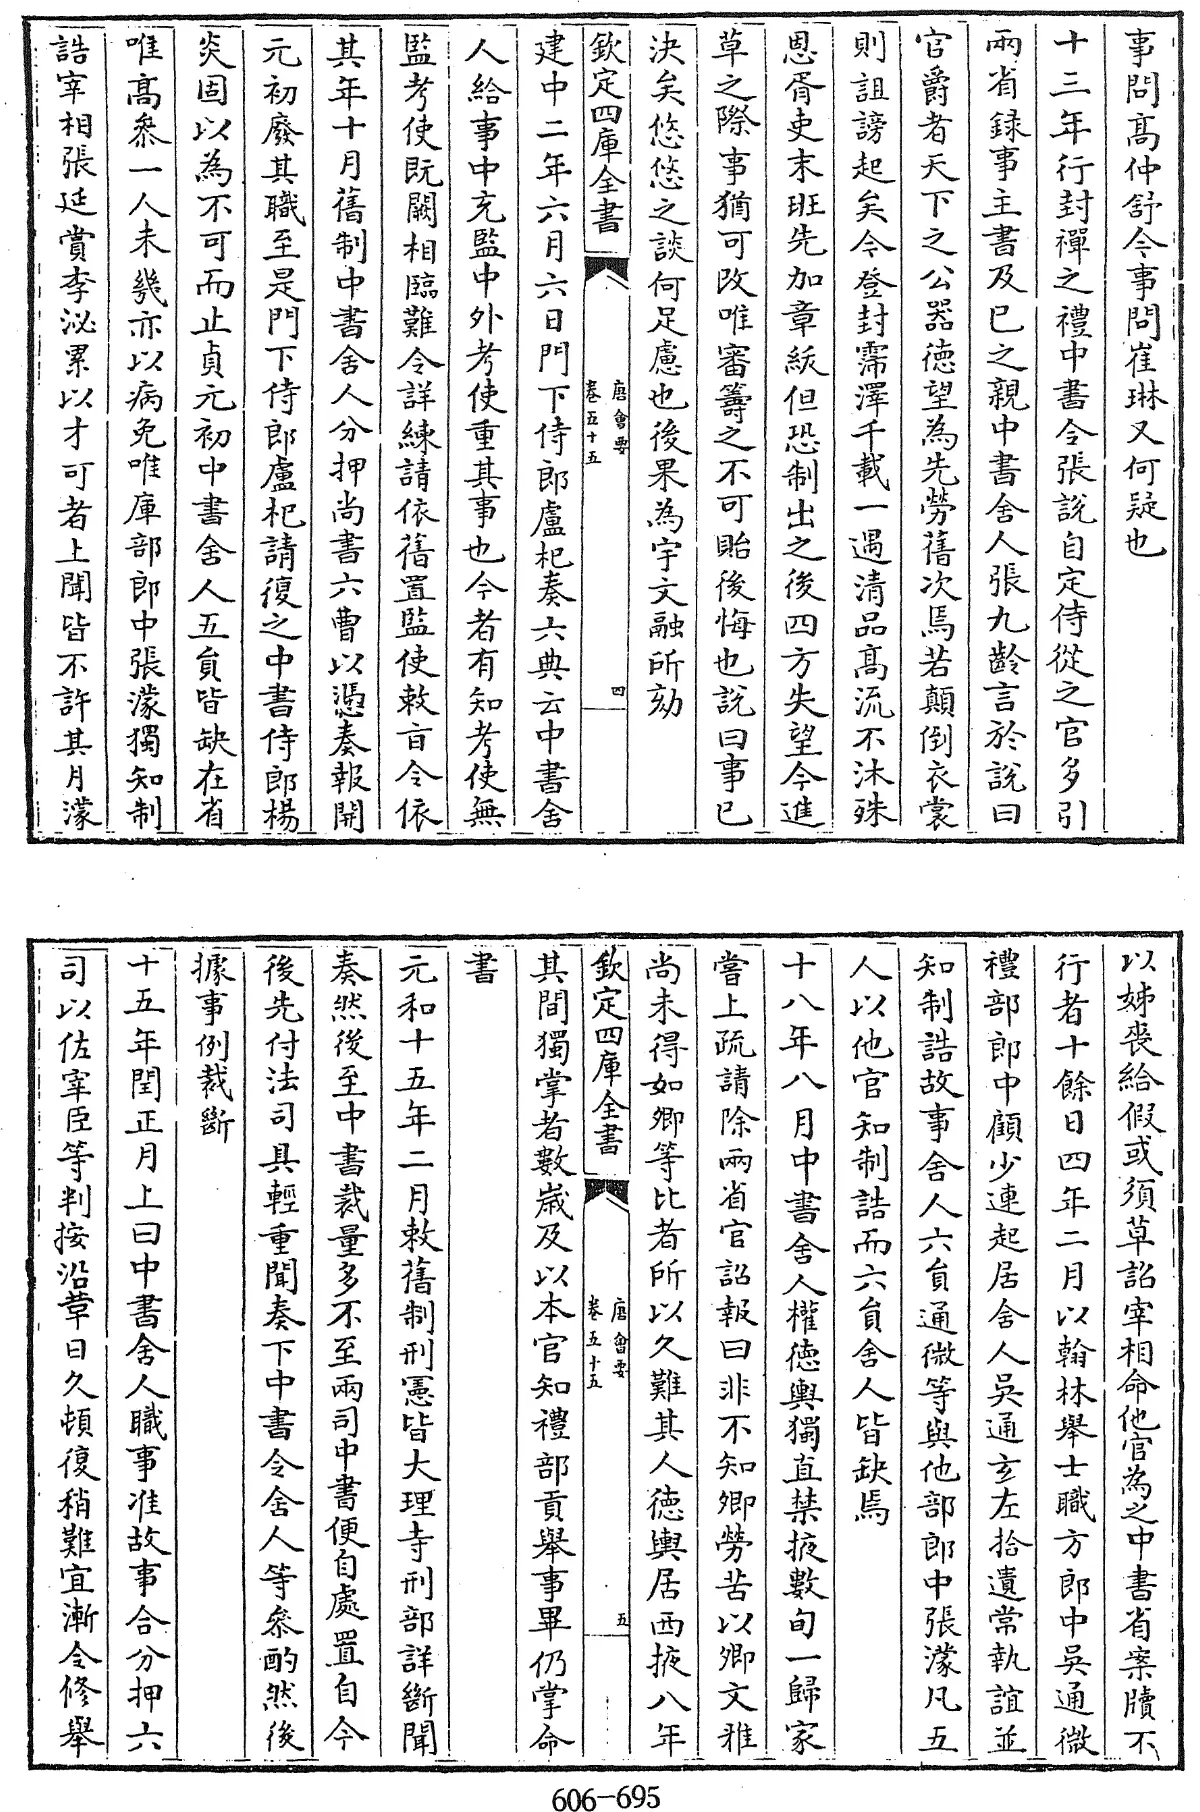 事問髙仲舒今事問崔琳又何疑也
十三年行封禪之禮中書令張說自定侍從之官多引
兩省録事主書及已之親中書舍人張九齡言於說曰
官爵者天下之公器徳望為先勞舊次焉若顛倒衣裳
則詛謗起矣今登封霈澤千載一遇清品髙流不沐殊
恩胥吏末班先加章紱但恐制出之後四方失望今進
草之際事猶可改唯審籌之不可貽後悔也說曰事已
決矣悠悠之談何足慮也後果為宇文融所劾
欽定四庫全書
唐會要
卷五十五
四
建中二年六月六日門下侍郎盧杞奏六典云中書舍
人給事中充監中外考使重其事也今者有知考使無
監考使既闕相臨難令詳練請依舊置監使敕㫖令依
其年十月舊制中書舍人分押尚書六曹以憑奏報開
元初廢其職至是門下侍郎盧杞請復之中書侍郎楊
炎固以為不可而止貞元初中書舍人五員皆缺在省
唯髙參一人未幾亦以病免唯庫部郎中張濛獨知制
誥宰相張延賞李泌累以才可者上聞皆不許其月濛
以姊喪給假或須草詔宰相命他官為之中書省案牘不
行者十餘日四年二月以翰林學士職方郎中吳通微
禮部郎中顧少連起居舍人吳通玄左拾遺常執誼並
知制誥故事舍人六員通微等與他部郎中張濛凡五
人以他官知制誥而六員舍人皆缺焉
十八年八月中書舍人權徳輿獨直禁掖數旬一歸家
嘗上疏請除兩省官詔報曰非不知卿勞苦以卿文雅
尚未得如卿等比者所以久難其人徳輿居西掖八年
欽定四庫全書
唐會要
卷五十五
五
其間獨掌者數歳及以本官知禮部貢舉事畢仍掌命
書
元和十五年二月敕舊制刑憲皆大理寺刑部詳斷聞
奏然後至中書裁量多不至兩司中書便自處置自今
後先付法司具輕重聞奏下中書令舍人等參酌然後
據事例裁斷
十五年閏正月上曰中書舍人職事准故事合分押六
司以佐宰臣等判按沿革日久頓復稍難宜漸令修舉
606-695